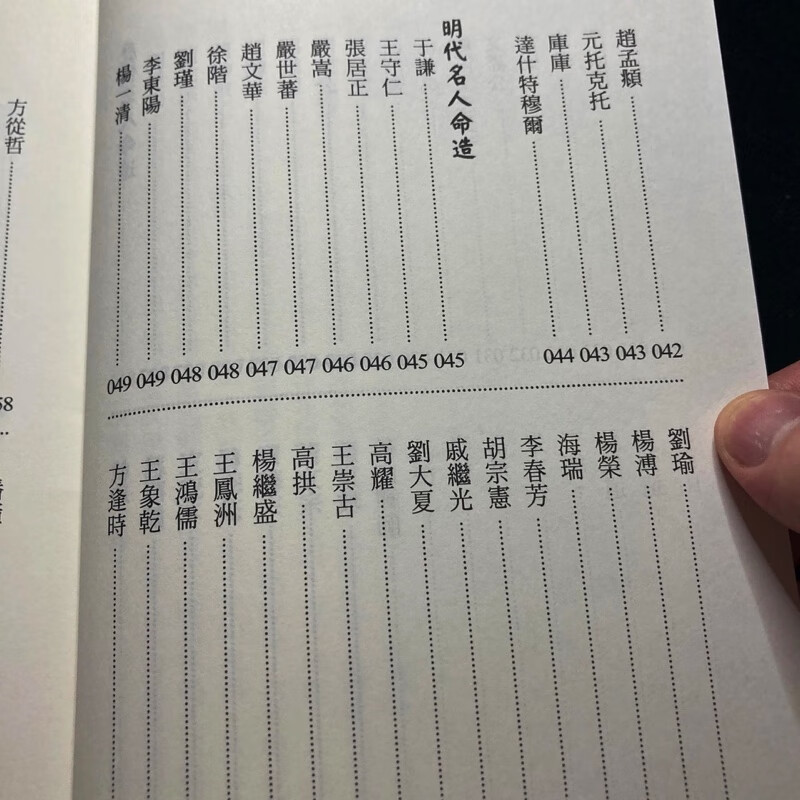 趙孟頫……042
元托克托……043
庫庫……043
達什特穆爾……044
明代名人命造
于謙……045
王守仁……045
張居正……046
嚴嵩……046
嚴世蕃……047
趙文華……047
徐階……048
劉瑾……048
李東陽……049
楊一清……049
劉瑜……
楊溥……
楊榮……
海瑞……
李春芳……
胡宗憲……
戚繼光……
劉大夏……
高耀……
王崇古……
高拱……
楊繼盛……
王鳳洲……
王鴻儒……
王象乾……
方逢時……
方從哲……58